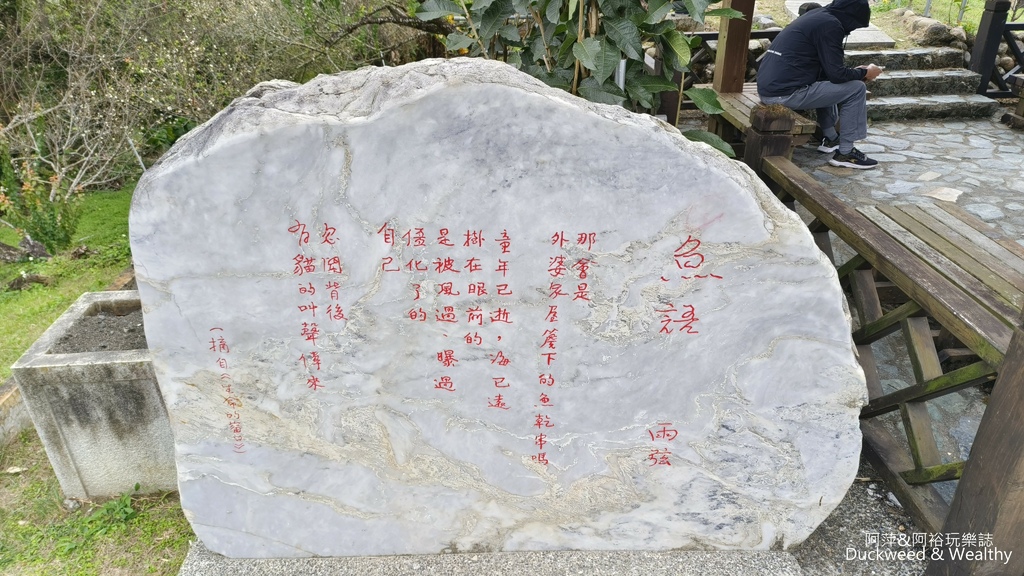 魚語
雨弦
那會是
外婆家屋簷下的魚乾串嗎
童年已逝,海已遠
掛在眼前的
是被風過、曝過
僵化了的
自己
忽聞背後
有貓的叫聲傳來
(摘自
阿萍&阿裕玩樂誌
Duckweed & Wealthy